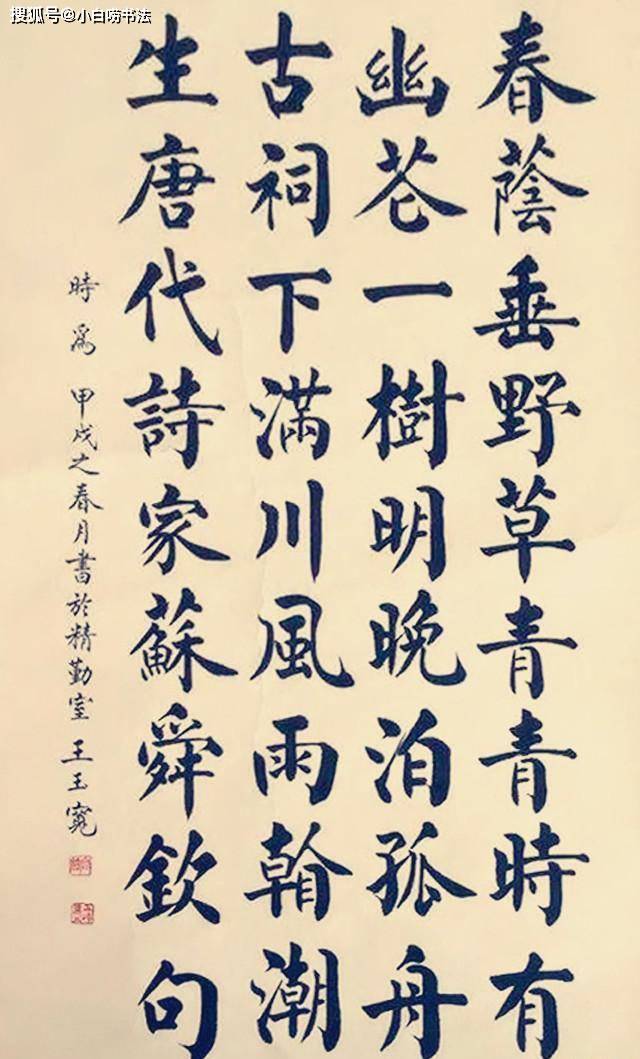 搜狐号@小白唠书法
春蔭垂野草青青時有
幽芲一樹明晚泊孤舟
古祠下滿川風雨翰潮
生唐代詩家蘇舜欽句
時爲甲戌之春月書於精勤室王玉寬